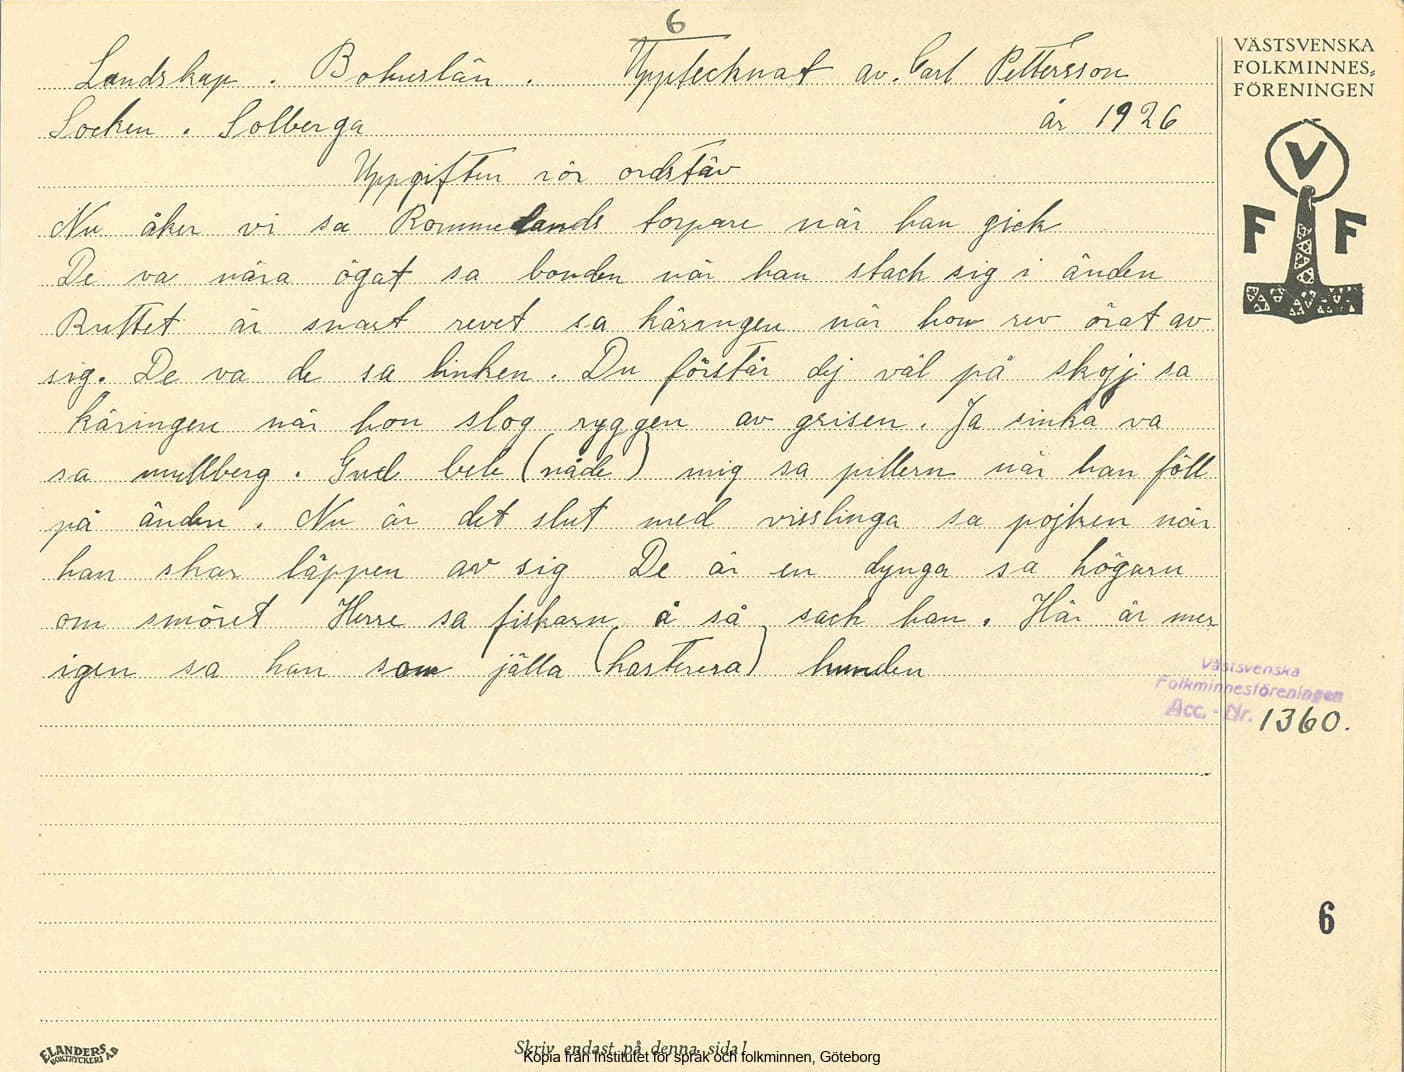 6
Landskap. Bohuslän. Upptecknat av. Carl Pettersson
Socken. Solberga år 1926
Uppgiften rör ordstäv
Nu åker vi sa Rommelands torpare när han gick
De va nära ögat sa bonden när han stack sig i änden
Ruttet är snart revet sa käringen när hon rev örat av
sig. De va de sa linken. Du förstår dej väl på skojj sa
käringen när hon slog ryggen av grisen. Ja sinka va
sa mullberg. Gud bele (nåde) mig sa pillern när han föll
på änden. Nu är det slut med visslinga sa pojken när
han skar läppen av sig De är en dynga sa högarn
om smöret Herre sa fiskarn å så sack han. Här är mer
igen sa han som jälla (kastrera) hunden
VÄSTSVENSKA
FOLKMINNES=
FÖRENINGEN
V
F F
Västsvenska
Folkminnesföreningen
Acc.-Nr. 1360.
6
ELANDERS
BOKTRYCKERI AB
Skriv endast på denna sida!
Kopia från Institutet för språk och folkminnen, Göteborg